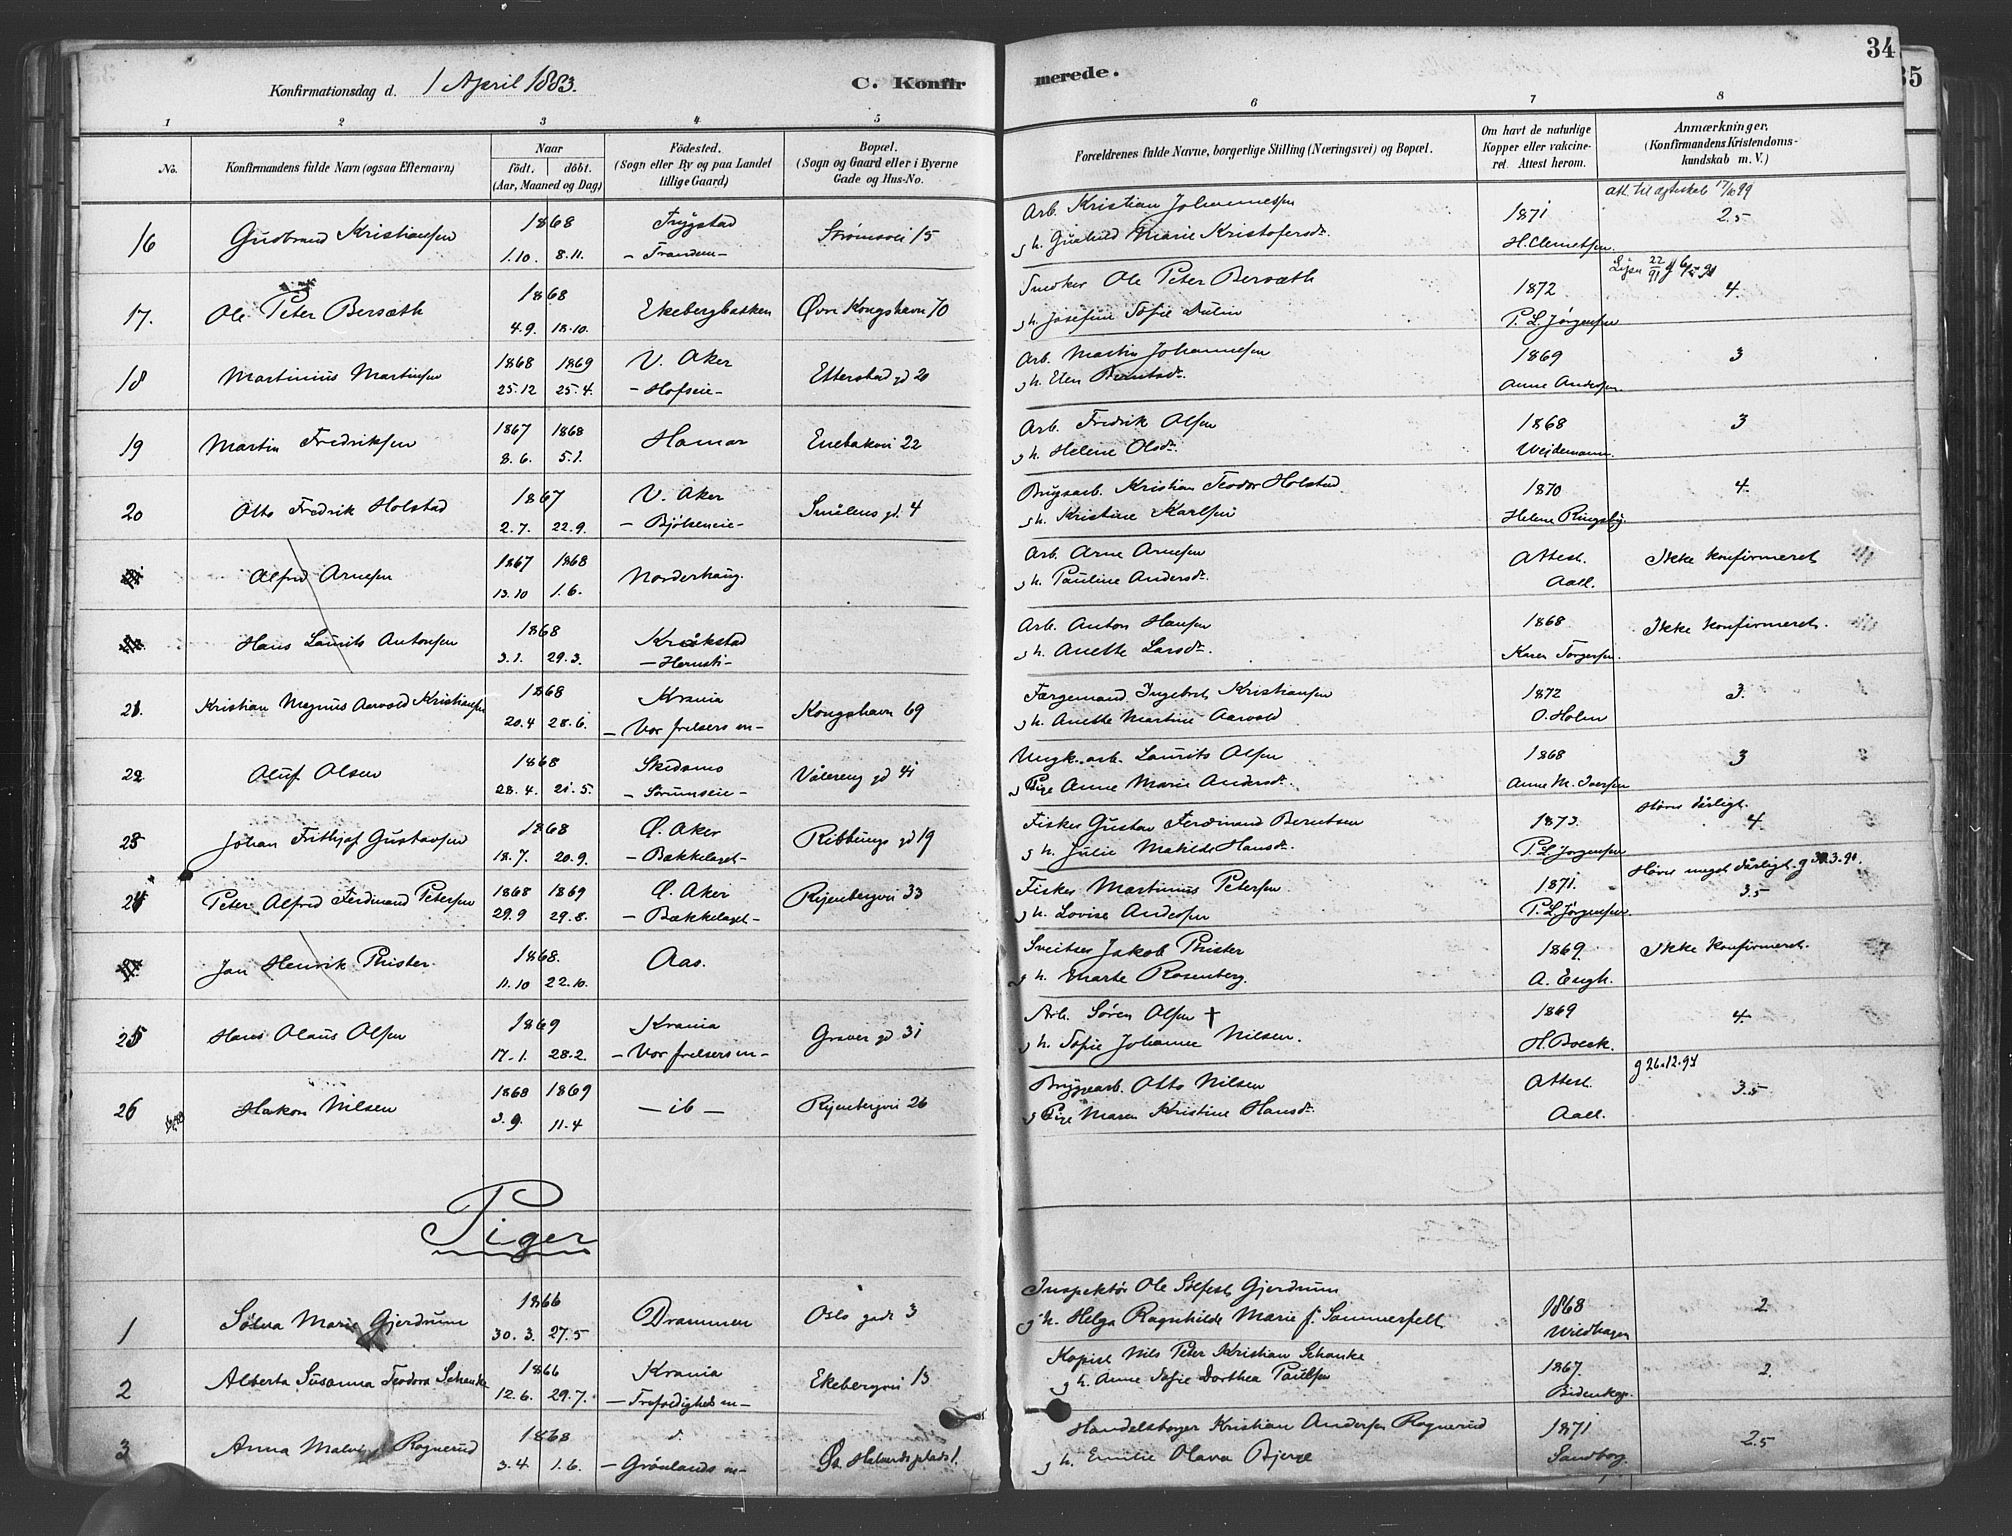 34
35
Konfirmationsdag d. 1 April 1883.
C. Konfirmerede.
1 2 3 4 5 6 7 8
No.
Konfirmandens fulde Navn (ogsaa Efternavn)
Naar
født. døbt.
(Aar, Maaned og Dag)
Fødested.
(Sogn eller By og paa Landet
tillige Gaard)
Bopæl.
(Sogn og Gaard eller i Byerne
Gade og Hus-No.
Forældrenes fulde Navne, borgerlige Stilling (Næringsvei) og Bopæl.
Om havt de naturlige
Kopper eller vakcine-
ret. Attest herom.
Anmærkninger.
(Konfirmandens Kristendoms-
kundskab m. V.)
att. til ægteskab 17/10 99
16 Gudbrand Kristiansen 1868 1.10. 8.11. Trygstad - Frandem - Strømsvei 15 Arb. Kristian Johannessen g h. Gunhild Marie Kristofersdr. 1871 H. Clemetsen 2.5
17. Ole Peter Bersæth 1868 4.9. 18.10. Ekebergbakken Øvre Kongshavn 70 Snedker Ole Peter Bersæth g h. Josefine Sofie Dulin 1872 P. L. Jørgensen 4.
18 Martinius Martinsen 1868 25.12 1869 25.4. V. Aker - Hofseie - Etterstad gd 20 Arb. Martin Johannesen g h. Elen Berntsdr. 1869 Anne Andersen 3
19 Martin Fredriksen 1867 8.6. 1868 5.1. Hamar Enebakvei 22 Arb. Fredrik Olsen g h. Helene Olsdr. 1868 Weidemann. 3
20 Otto Fredrik Holstad 1867 2.7. 22.9. V. Aker - Bjølseneie - Smålens gd. 4 Brugsarb. Kristian Teodor Holstad g h. Kristine Karlsen 1870 Helene Ringsby. 4.
Alfred Arnesen 1867 13.10 1868 1.6. Norderhaug. Arb. Arne Arnesen g h. Pauline Andersdr. Attest. Aall. Ikke konfirmeret
Hans Laurits Antonsen 1868 3.1. 29.3. Kråkstad Arb. Anton Hansen g h. Anette Larsdr. 1868 Karen Torgersen. Ikke konfirmeret.
21. Kristian Magnus Aarvold Kristiansen 1868 20.4 28.6. Krania - Vor frelsers m - Kongshavn 69 Færgemand Ingebret Kristiansen g h. Anette Martine Aarvold 1872 O. Holm 3.
22 Oluf Olsen 1868 28.4. 21.5. Skedsmo - Sørumseie - Vålereng gd 41 Ungk. arb. Laurits Olsen g Pige Anne Marie Andersdr. 1868 Anne M. Iversen 3
23 Johan Frithjof Gustavsen 1868 18.7. 20.9. Ø. Aker - Bækkelaget - Ribbungs gd 19 Fisker Gustav Ferdinand Berntsen g h. Julie Matilde Hansdr. 1873. P. L. Jørgensen Hører dårligt. 4.
24 Peter Alfred Ferdinand Petersen 1868 29.9 1869 29.8. Ø. Aker - Bækkelaget - Ryenbergvei 33 Fisker Martinius Petersen g h. Lovise Andersen 1871. P. L. Jørgensen Hører meget dårligt. 3.5
Jan Henrik Phister. 1868. 11.10 22.10. Aas. Sveitser Jakob Phister g h. Marte Rosenberg. 1869. A. Engh. Ikke konfirmeret.
25 Hans Olaus Olsen 1869 17.1. 28.2. Krania - Vor frelsers m - Graver gd 31 Arb. Søren Olsen † g h. Sofie Johanne Nilsen. 1869 H. Boeck. 4.
26 Hakon Nilsen 1868 3.9. 1869 11.4 - ib - Ryenbergvei 26 Bryggearb. Otto Nilsen g Pige Maren Kristine Hansdr. Attest. Aall. g 26.12.94 3.5
Piger
1 Solva Marie Gjerdrum 1866 30.3. 27.5 Drammen Oslo gade 3 Inspektør Ole Sølfest Gjerdrum g h. Helga Ragnhilde Marie f. Sommerfelt 1868 Wildhagen 2
2 Alberta Susanna Teodora Schanke 1866 12.6. 29.7. Krania - Trefoldigheds m - Ekebergvei 13 Kopist Nils Peter Kristian Schanke g h. Anne Sofie Dorthea Paulsen 1867. Bidenkap. 2.
3 Anna Malvi Rognerud 1868 3.4. 1.6. - Grønlands m - Halvards plads 1. Handelsborger Kristian Andersen Rognerud g h. Emilie Olava Bjerge 1871 Sandborg. 2.5